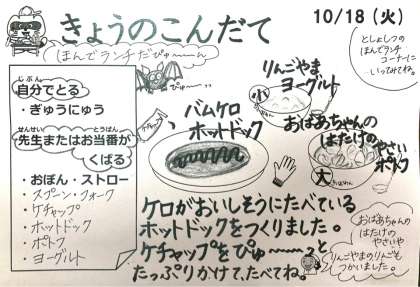 きょうのこんだて
10/18（火）
ほんでランチだぴゅ〜〜ん
ぴゅ〜ん
としょしつの
ほんでランチ
コーナーに
いってみてね。
じぶん
自分でとる
・ぎゅうにゅう
せんせい とうばん
先生またはお当番が
くばる
・おぼん・ストロー
・スプーン・フォーク
・ケチャップ
・ホットドック
・ポトフ
・ヨーグルト
バムケロ
ホットドック
りんごやま
ヨーグルト
小
おばあちゃんの
はたけの
やさい
ポトフ
大
ケロがおいしそうにたべている
ホットドックをつくりました。
ケチャップをぴゅ〜〜っと
たっぷりかけて、たべてね。
おばあちゃんの
はたけの
やさいや
りんごやまのりんごも
つかいました。